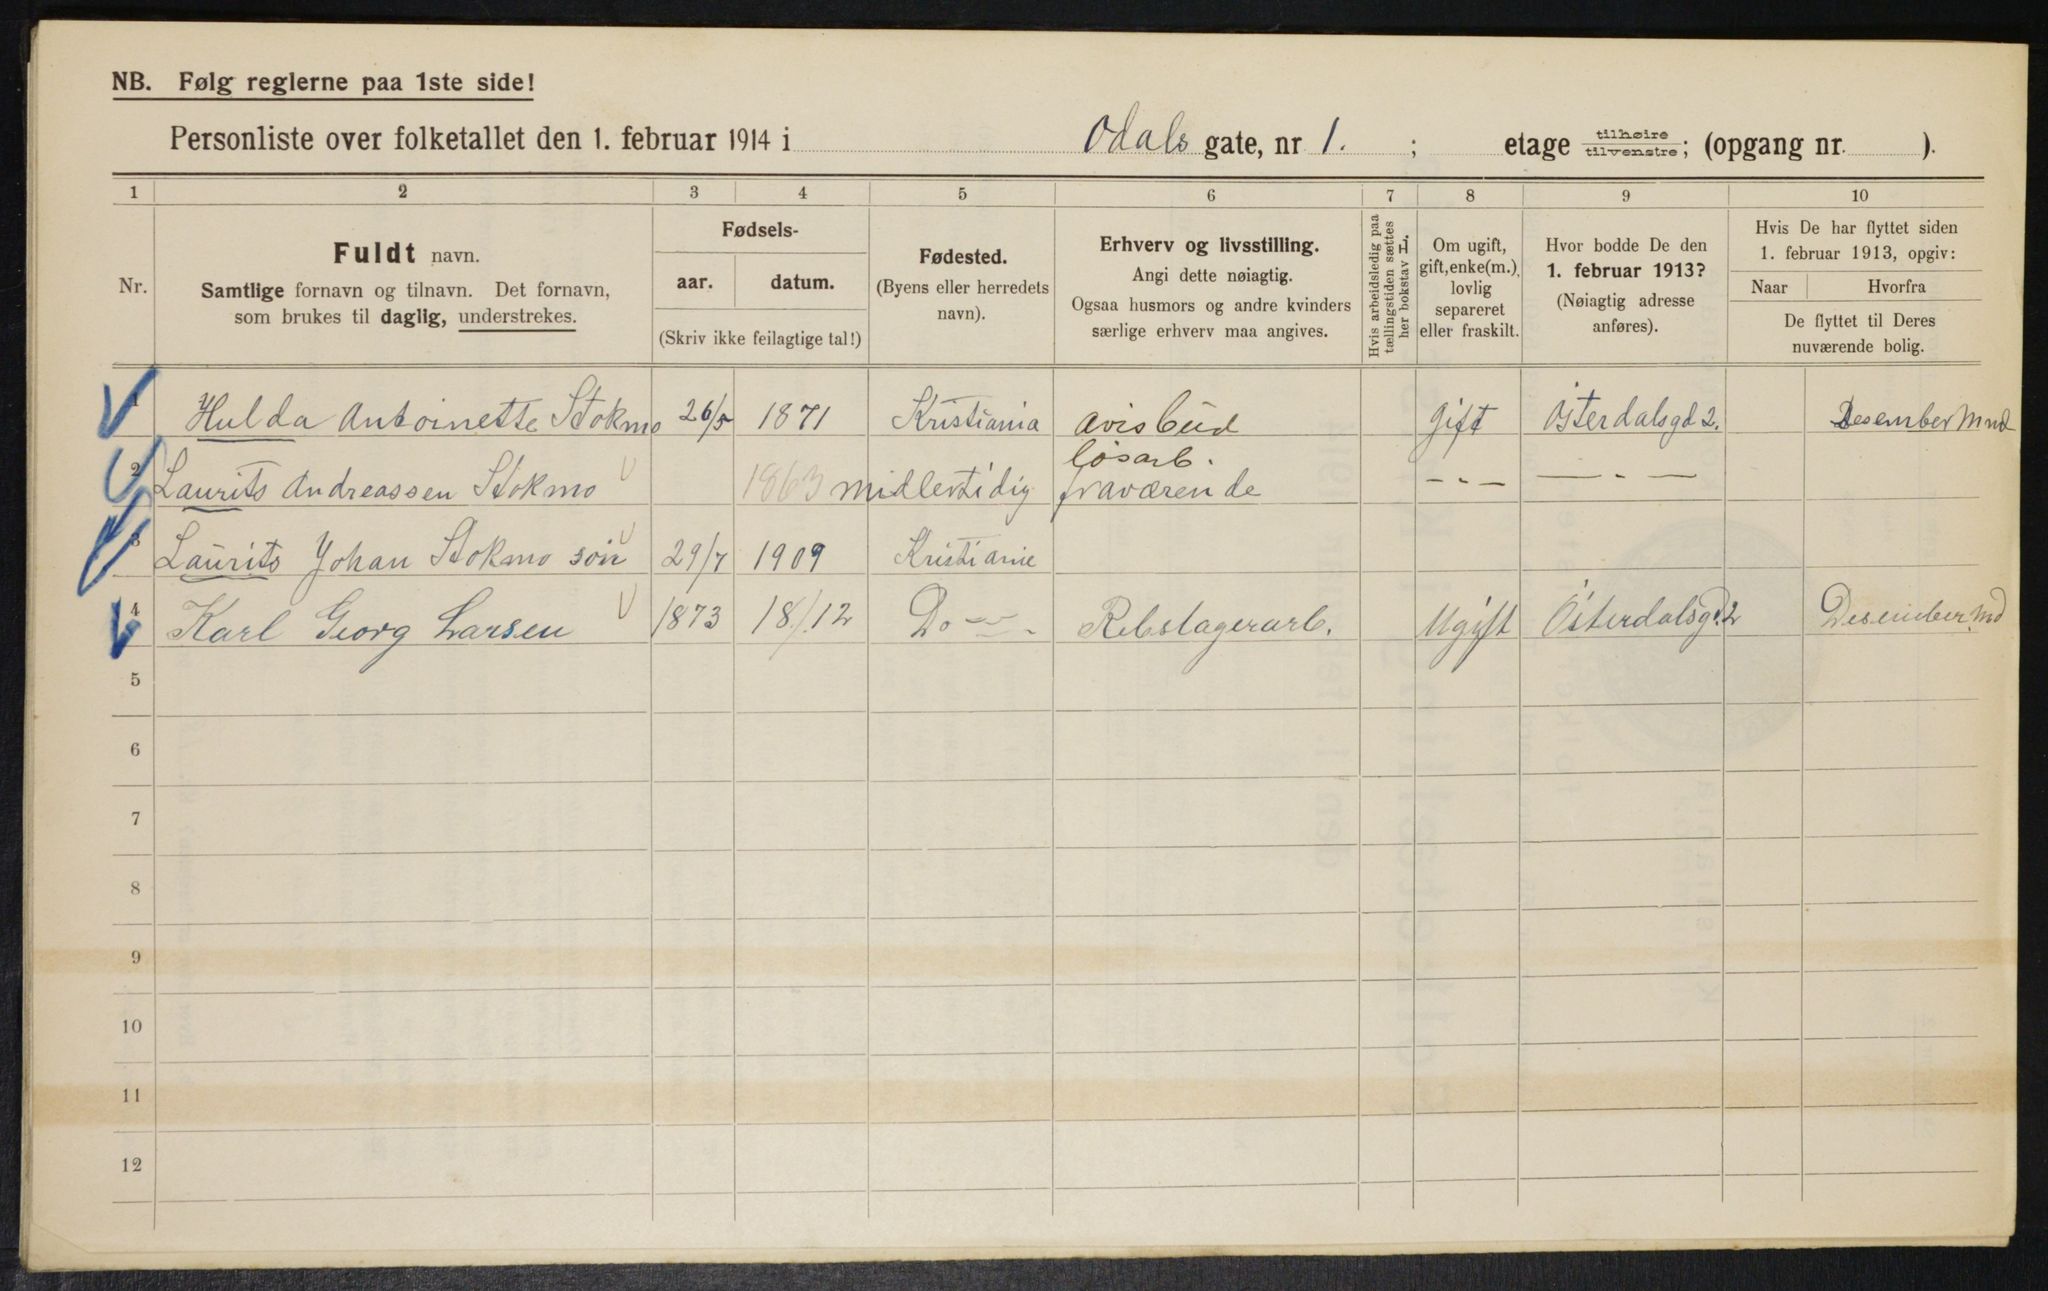 NB. Følg reglerne paa 1ste side!
Personliste over folketallet den 1. februar 1914 i Odals gate, nr 1. ; etage tilhøire/tilvenstre; (opgang nr. ).
1 2 3 4 5 6 7 8 9 10
Nr.
Fuldt navn.
Samtlige fornavn og tilnavn. Det fornavn,
som brukes til daglig, understrekes.
Fødsels-
aar. datum.
(Skriv ikke feilagtige tal!)
Fødested.
(Byens eller herredets
navn).
Erhverv og livsstilling.
Angi dette nøiagtig.
Ogsaa husmors og andre kvinders
særlige erhverv maa angives.
Hvis arbeidsledig paa
tællingstiden sættes
her bokstav L.
Om ugift,
gift, enke(m.),
lovlig
separeret
eller fraskilt.
Hvor bodde De den
1. februar 1913?
(Nøiagtig adresse
anføres).
Hvis De har flyttet siden
1. februar 1913, opgiv:
Naar Hvorfra
De flyttet til Deres
nuværende bolig.
1 Hulda Antoinette Stokmo 26/5 1871 Kristiania Avisbüd Gift Österdalsgd 2. Desember Mnd
løsarb.
2 Laurits Andreassen Stokmo 1863 midlertidig fraværende — „ — — „ —
3 Laurits Johan Stokmo søn 29/7 1909 Kristianie
4 Karl Georg Larsen 1873 18/12 Do —„— Rebslagerarb. Ugift Österdalsgd. 2 Desember. Md
5
6
7
8
9
10
11
12